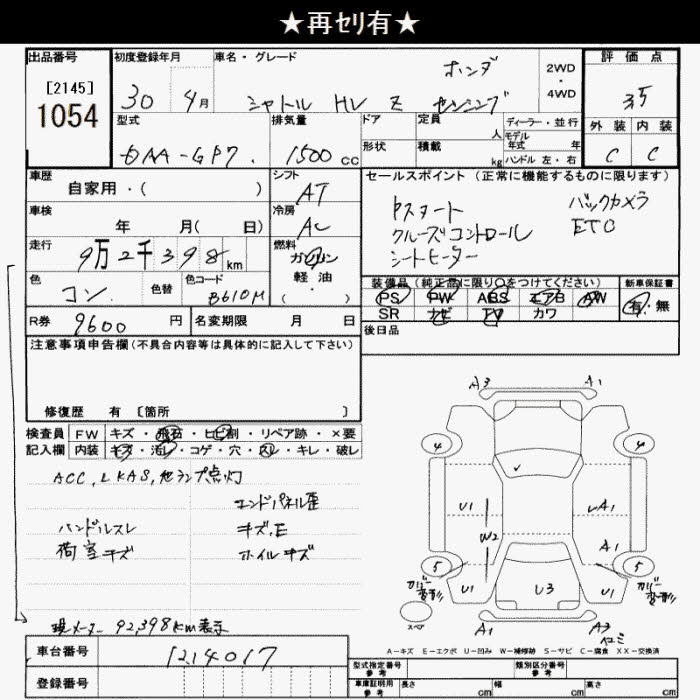 ★再ｾﾘ有★
出品番号
[2145]
1054
初度登録年月
30 4月
車名・グレード
ホンダ
シャトル HV Z センシング
2WD
・
4WD
評価点
3.5
外装 内装
C C
型式
DAA-GP7
排気量
1500 cc
ドア
形状
定員
人
積載
kg
ディーラー・並行
モデル
年式 年
ハンドル 左・右
車歴
自家用・( )
シフト
AT
車検
年 月( 日)
冷房
AC
走行
9万2千398km
燃料
ガソリン
軽油・
( )
色
コン
色替
色コード
B610M
R券
9600 円
名変期限 月 日
セールスポイント (正常に機能するものに限ります)
Pスタート
バックカメラ
クルーズコントロール
ETC
シートヒーター
装備品 (純正品に限り〇をつけてください)
PS PW ABS エアB AW
SR ナビ TV カワ
新車保証書
有・無
後日品
注意事項申告欄(不具合内容等は具体的に記入して下さい)
修復歴 有 〔箇所 〕
検査員
記入欄
FW キズ・飛石・ヒビ割・リペア跡・×要
内装 キズ・汚レ・コゲ・穴・スレ・キレ・破レ
ACC, LKAS, 他ランプ点灯
エンドパネル歪
ハンドルスレ
キズ, E
荷室キズ
ホイルキズ
現メーター 92,398km表示
A3 A1
4 4
U1 A1
W2
A1
5 5
カバー変形
カバー変形
U1 U3 U1
スペア
A1 A3
A－キズ E－エクボ U－凹み W－補修跡 S－サビ C－腐食 XX－交換済
車台番号
1214017
登録番号
型式指定番号
参考
類別区分番号
参考
車庫証明用
参考
長さ cm
幅 cm
高さ cm